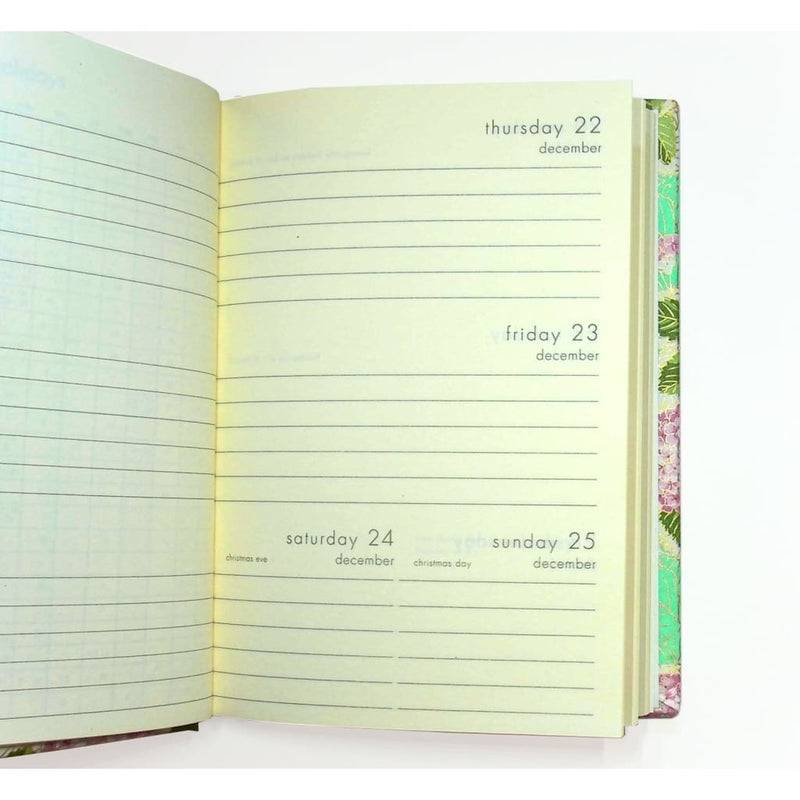 thursday 22
december
friday 23
december
saturday 24
december
christmas eve
sunday 25
december
christmas day